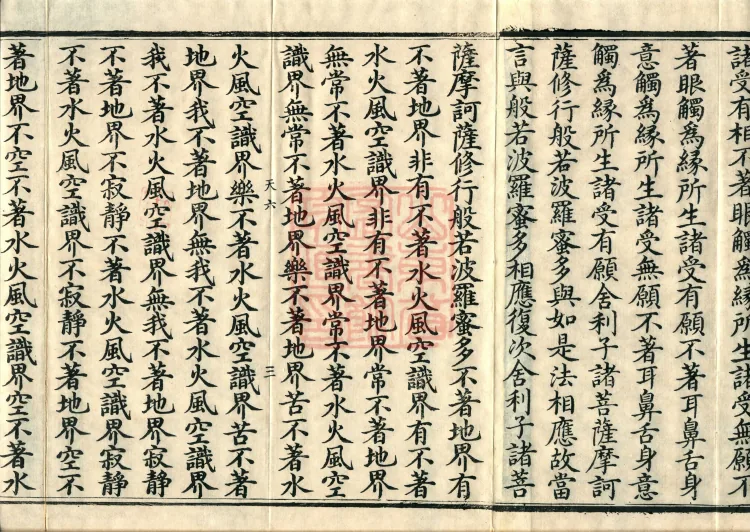 諸受有相不著眼觸爲緣所生諸受無願不
著眼觸爲緣所生諸受有願不著耳鼻舌身
意觸爲緣所生諸受無願不著耳鼻舌身意
觸爲緣所生諸受有願舍利子諸菩薩摩訶
薩修行般若波羅蜜多與如是法相應故當
言與般若波羅蜜多相應復次舍利子諸菩
薩摩訶薩修行般若波羅蜜多不著地界有
不著地界非有不著水火風空識界有不著
水火風空識界非有不著地界常不著地界
無常不著水火風空識界常不著水火風空
識界無常不著地界樂不著地界苦不著水
天六 三
火風空識界樂不著水火風空識界苦不著
地界我不著地界無我不著水火風空識界
我不著水火風空識界無我不著地界寂靜
不著地界不寂靜不著水火風空識界寂靜
不著水火風空識界不寂靜不著地界空不
著地界不空不著水火風空識界空不著水